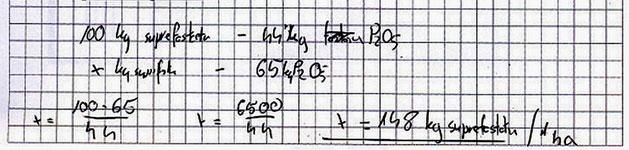 100 kg superfosfatu - 44 kg P₂O₅
x kg superfosfatu - 65 kg P₂O₅
x = 100·65 / 44   x = 6500 / 44   x = 148 kg superfosfatu / 1 ha